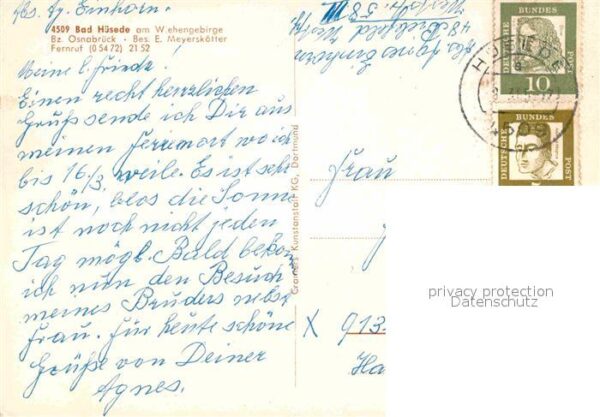 Abs. Ag. Einhorn.
4509 Bad Hüsede am Wiehengebirge
Bz. Osnabrück · Bes. E. Meyerskötter
Fernruf (0 54 72) 21 52
Meine l. Friedz.
Einen recht herzlichen
Gruß sende ich Dir aus
meinen Ferienort wo ich
bis 16./3 weile. Es ist sehr
schön, blos die Sonne
ist noch nicht jeden
Tag mögl. Bald bekom
ich nun den Besuch
meines Bruders nebst
Frau. Für heute schöne
Grüße von Deiner
Agnes.
Abs. Agnes Einhorn
48 Bielefeld
Graphers Kunstanstalt KG, Dortmund
DEUTSCHE BUNDES POST
10
HÜSEDE
4509
DEUTSCHE BUNDES POST
Frau
X 913.
Ha
privacy protection
Datenschutz